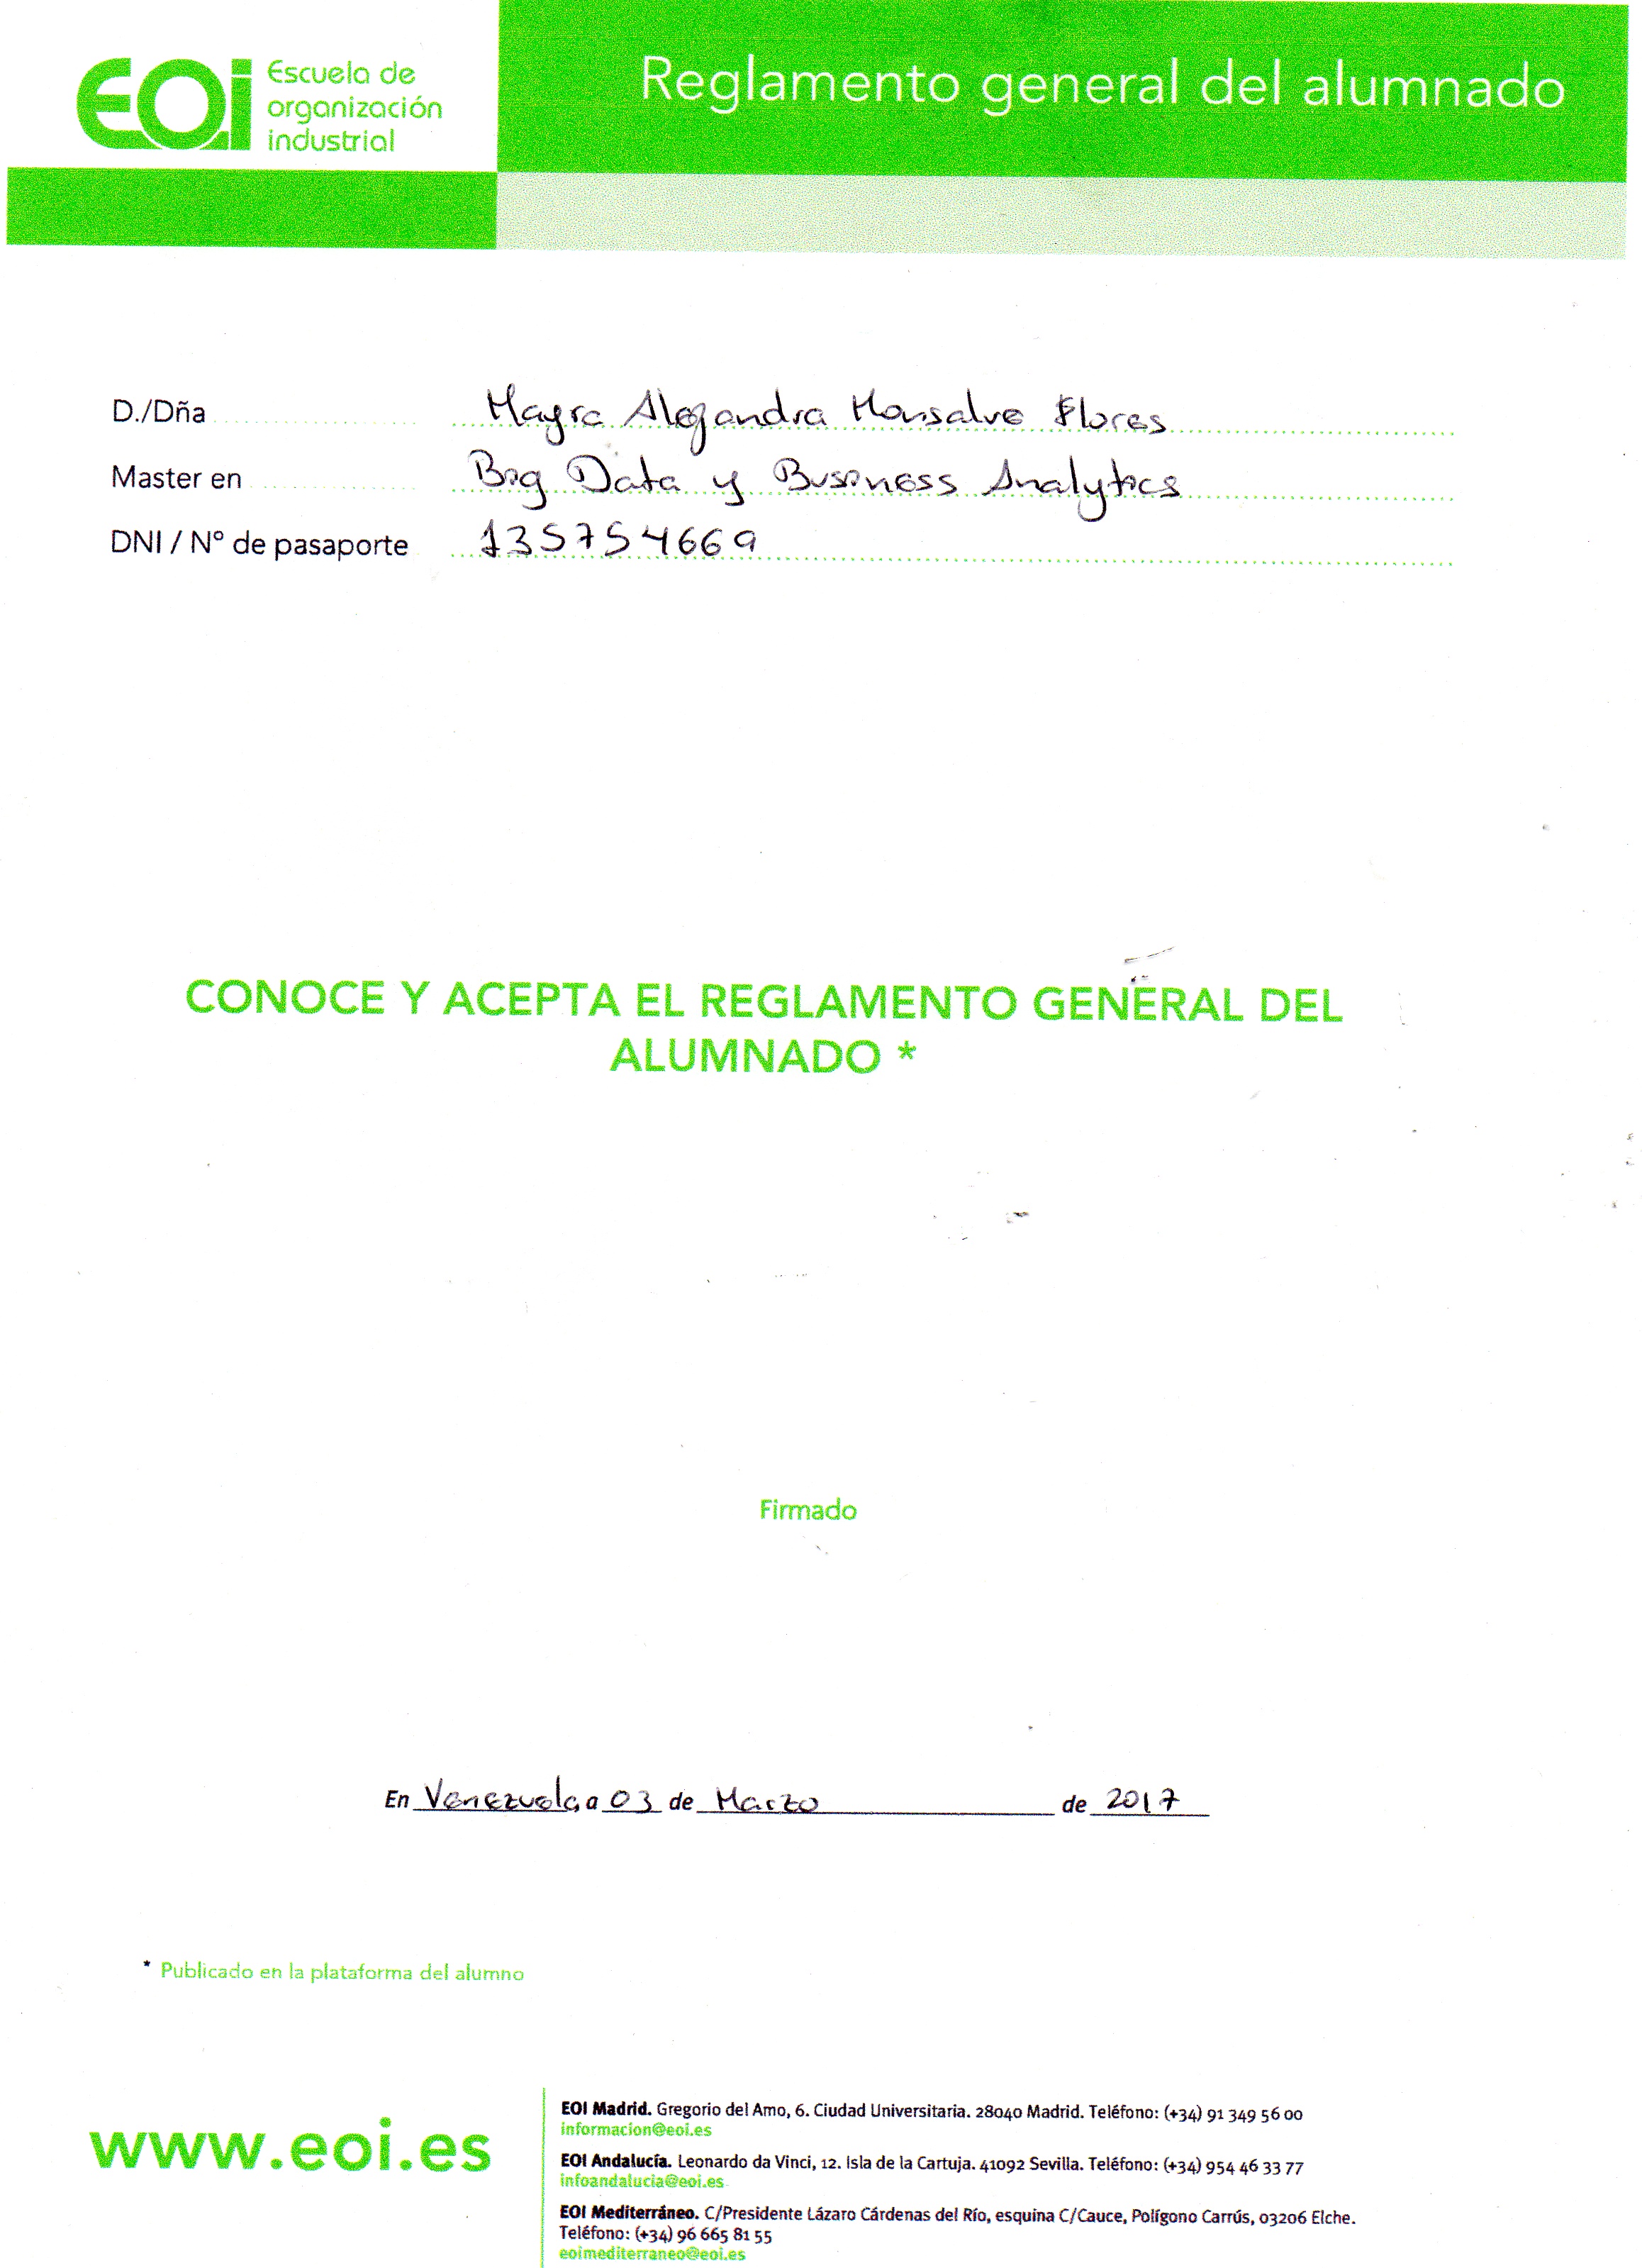 EOi Escuela de
organización
industrial
Reglamento general del alumnado
D./Dña Mayra Alejandra Monsalve Flores
Master en Big Data y Business Analytics
DNI / Nº de pasaporte 135754669
CONOCE Y ACEPTA EL REGLAMENTO GENERAL DEL
ALUMNADO *
Firmado
En Venezuela, a 03 de Marzo de 2017
* Publicado en la plataforma del alumno
www.eoi.es
EOI Madrid. Gregorio del Amo, 6. Ciudad Universitaria. 28040 Madrid. Teléfono: (+34) 91 349 56 00
informacion@eoi.es
EOI Andalucía. Leonardo da Vinci, 12. Isla de la Cartuja. 41092 Sevilla. Teléfono: (+34) 954 46 33 77
infoandalucia@eoi.es
EOI Mediterráneo. C/Presidente Lázaro Cárdenas del Río, esquina C/Cauce, Polígono Carrús, 03206 Elche.
Teléfono: (+34) 96 665 81 55
eoimediterraneo@eoi.es